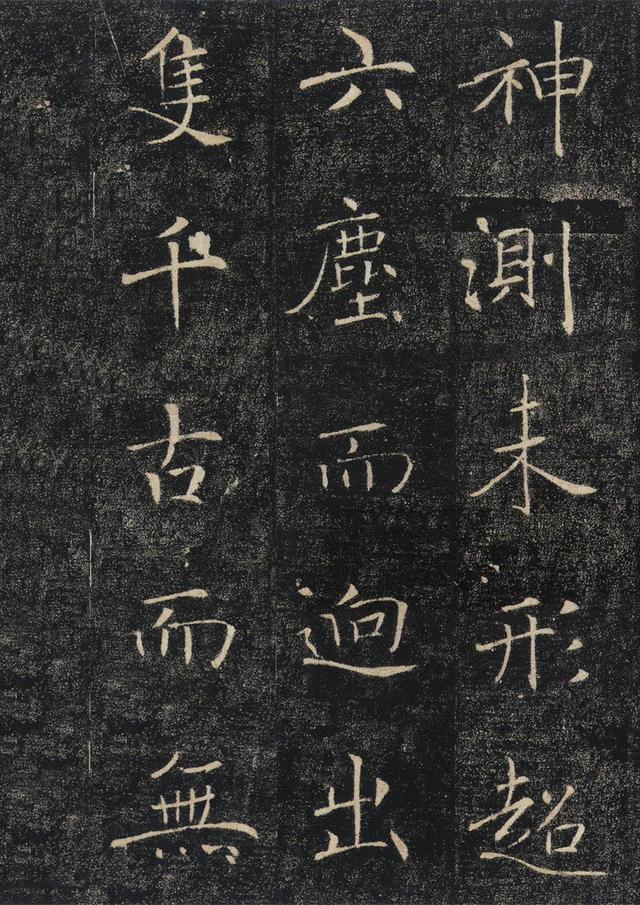 神測未形超
六塵而迥出
隻千古而無